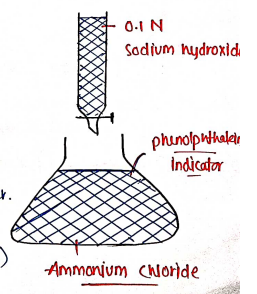 0.1 N
Sodium hydroxide
phenolphthalein
indicator
r.
)
Ammonium chloride